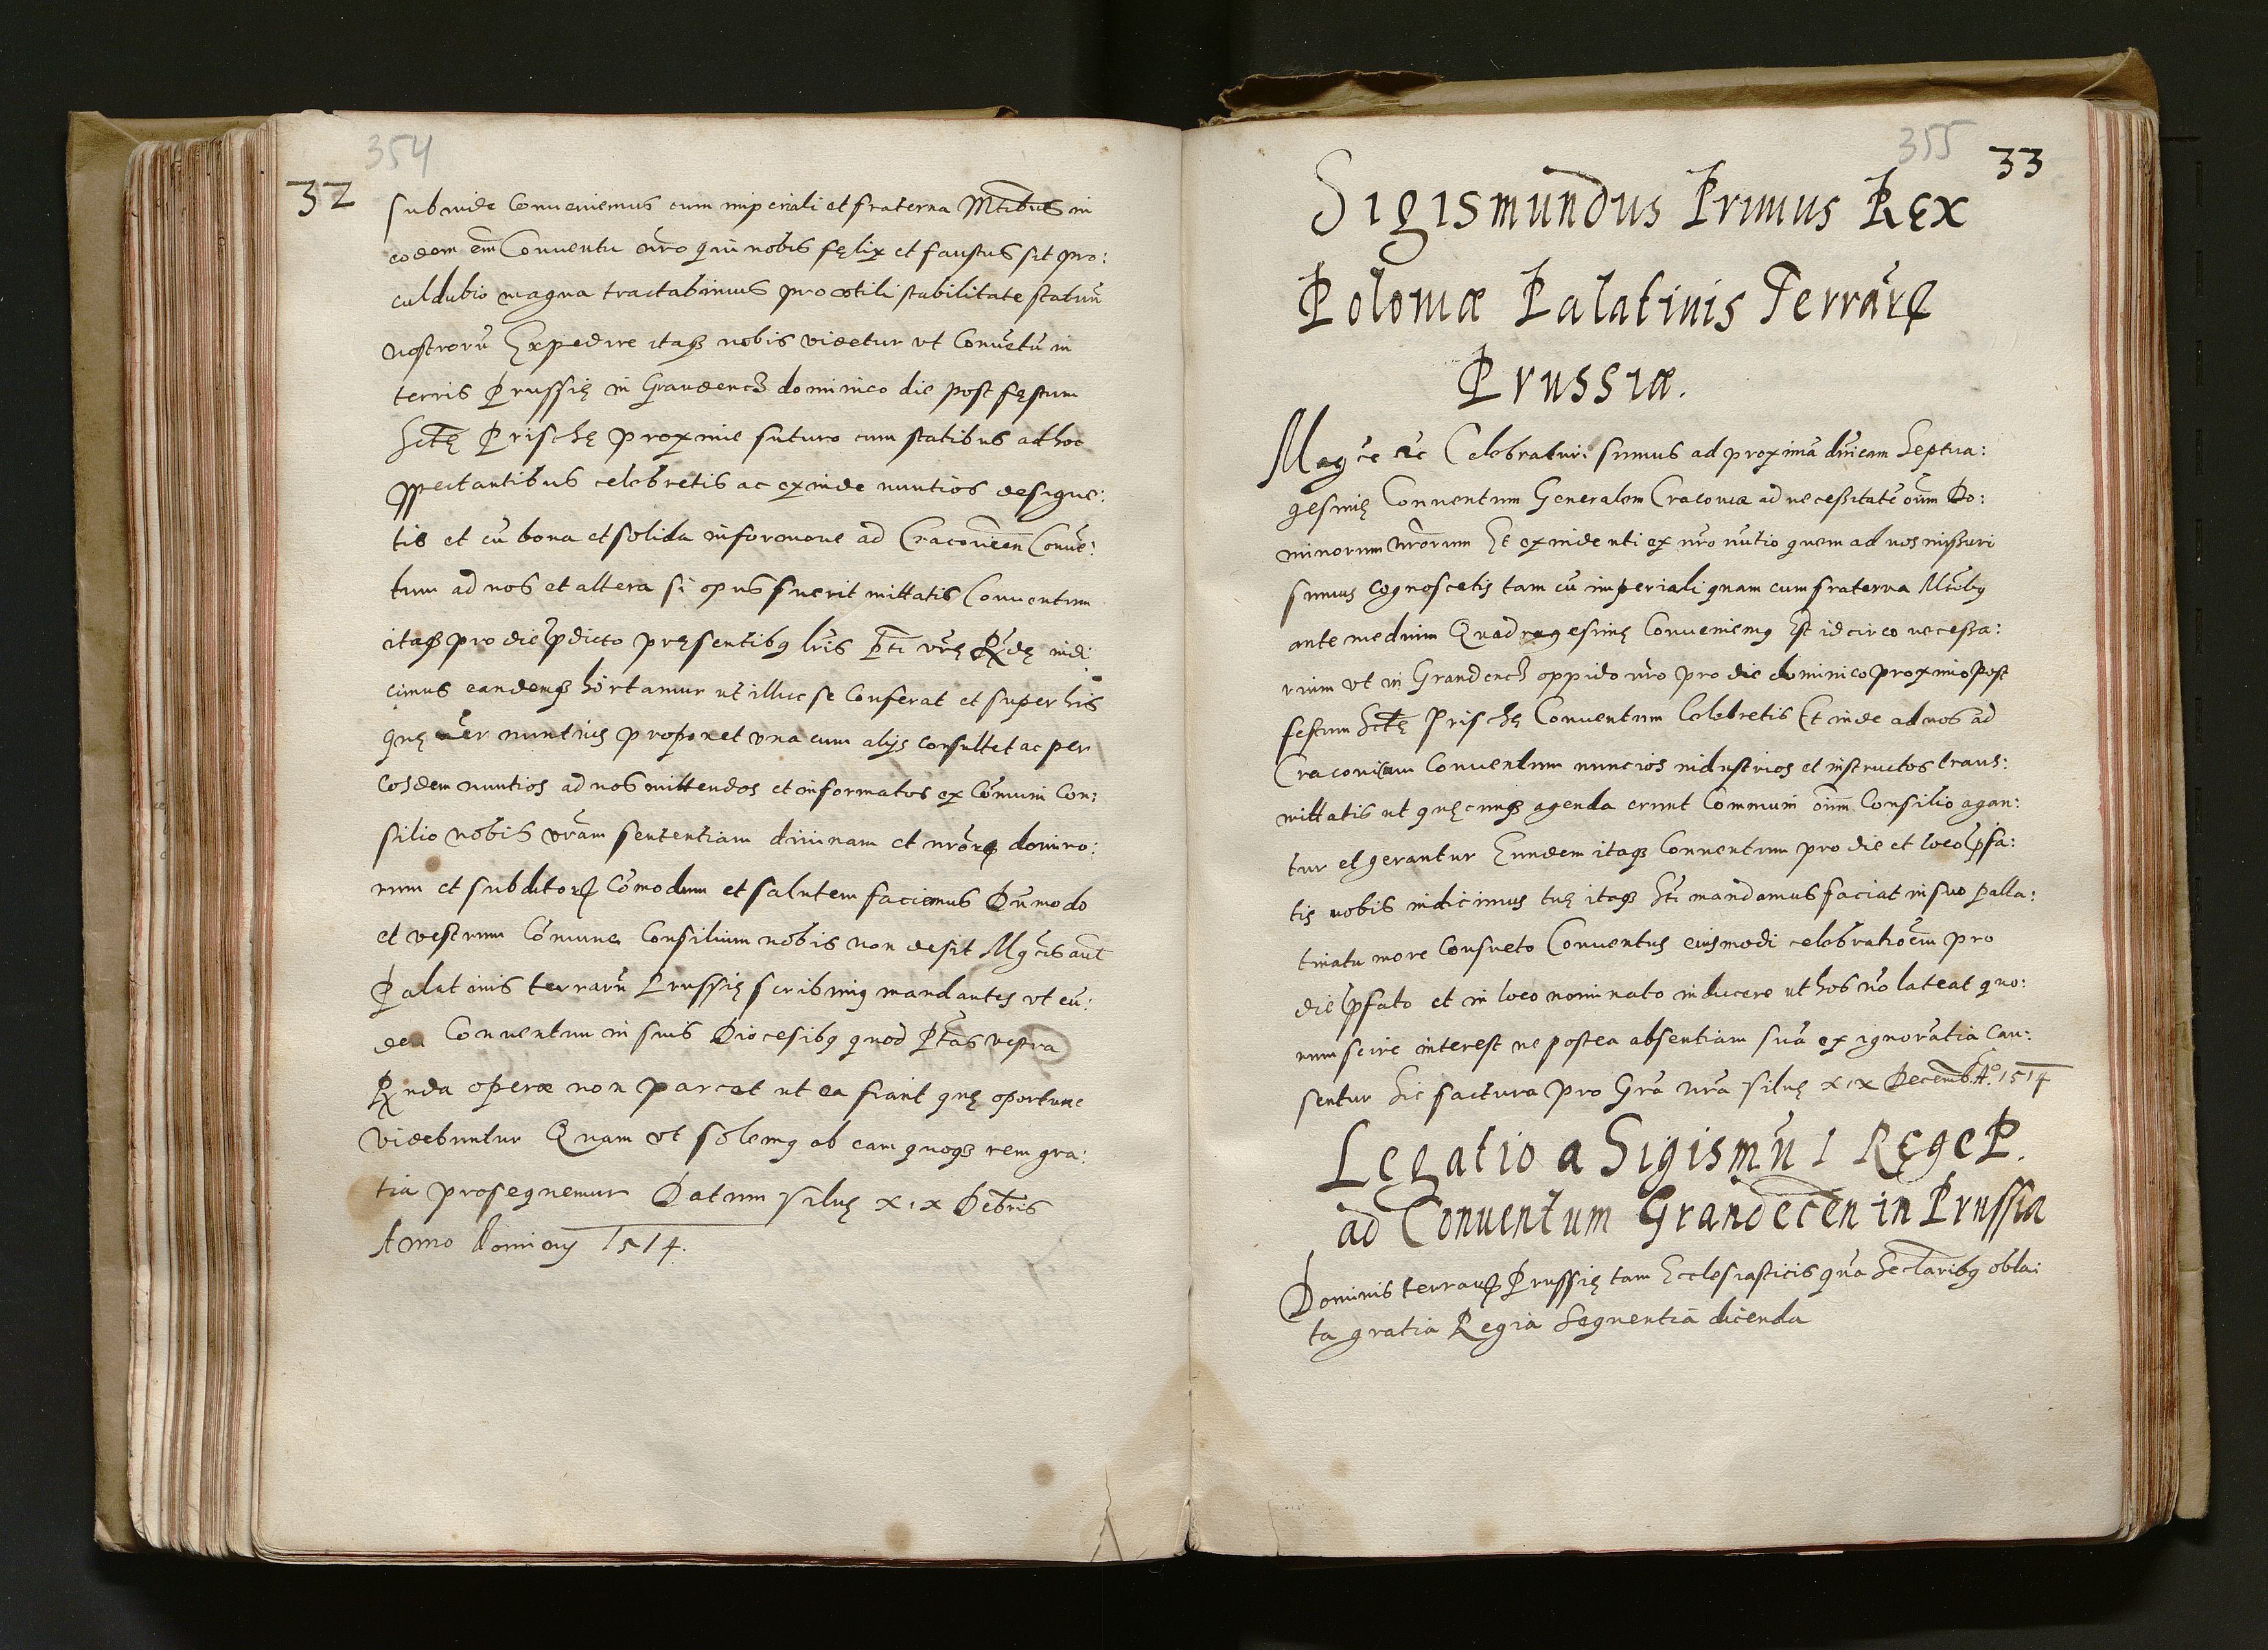 354
32
subinde Conveniemus cum imperiali et fraterna Mtibus in
eodem em̄ Conventu nr̄o qui nobis fęlix et faustus sit pro:
culdubio magna tractabimus pro utili stabilitate statuū
nostrorū Expedire itaqȝ nobis videtur vt Convētū in
terris Prussię in Graudencȝ dominico die post fęstum
Sctę Prischę proxime futuro cum statibus ad hoc
spectantibus celebretis ac exinde nuntios designe:
tis et cū bona et solida informone ad Cracovien̄ Convē:
tum ad nos et altera si opus fuerit mittatis Conventum
itaqȝ pro die p̄dicto pręsentibꝯ lr̄is Pti vr̄ę Rn̄dę indi
cimus eandemqȝ hortamur ut illuc se Conferat et super his
quę nuntius proponet vna cum alijs consultet ac per
eosdem nuntios ad nos mittendos et informatos ex Cōmuni Con:
silio nobis vr̄am sententiam divinam et nr̄orꝝ domino:
rum et subditorꝝ Cōmodum et salutem faciemus Dūmodo
et vestrum Cōmune Consilium nobis non desit Mgcis aut̄
Palatinis terrarū Prussię scribimꝯ mandantes vt eū:
dem Conventum in suis Diocesibꝯ quod Ptas vestra
Rnda operæ non parcet ut ea fiant quę oportune
videbuntur Quam vt solemꝯ ob eam quoqȝ rem gra:
tia prosequemur Datum Vilnę XIX Decbris
Anno Domini 1514.
355
33
Sigismundus Primus Rex
Poloniæ Palatinis Terrarꝝ
Prussiæ.
Mag ce &c Celebraturi sumus ad proximā dnīcam Septua:
gesimę Conventum Generalem Cracoviæ ad necessitatē oim̄ Do:
minorum nr̄orum Et exinde uti ex nr̄o nūtio quem ad vos missuri
sumus cognoscetis tam cū imperiali quam cum fraterna Mtibꝯ
ante medium Quadragesimę Conveniemꝯ Est idcirco necessa:
rium vt in Graudencȝ oppido nr̄o pro die dominico proximo post
festum Sctę Prischę Conventum Celebretis Et inde ad nos ad
Cracoviam Conventum nuncios industrios et instructos trans:
mittatis ut quęcunqȝ agenda erunt Communi oim̄ Consilio agan:
tur et gerantur Eundem itaqȝ Conventum pro die et loco p̄fa:
tis vobis indicimus tuę itaqȝ Sti mandamus faciat in suo palla:
tinatu more Consueto Conventus eiusmodi celebrationem pro
die p̄fato et in loco nominato inducere ut hos nō lateat quo:
rum scire interest ne postea absentiam suā ex ignorātia Cau:
sentur Sic factura pro Grā nrā Vilnę XIX Decemb. Ao. 1514
Legatio a Sigismun̄ I Rege P.
ad Conventum Graudecen in Prussia
Dominis terrarꝝ Prussię tam Ecclesiasticis quā Seclaribꝯ obla:
ta gratia Regia Sequentia dicenda